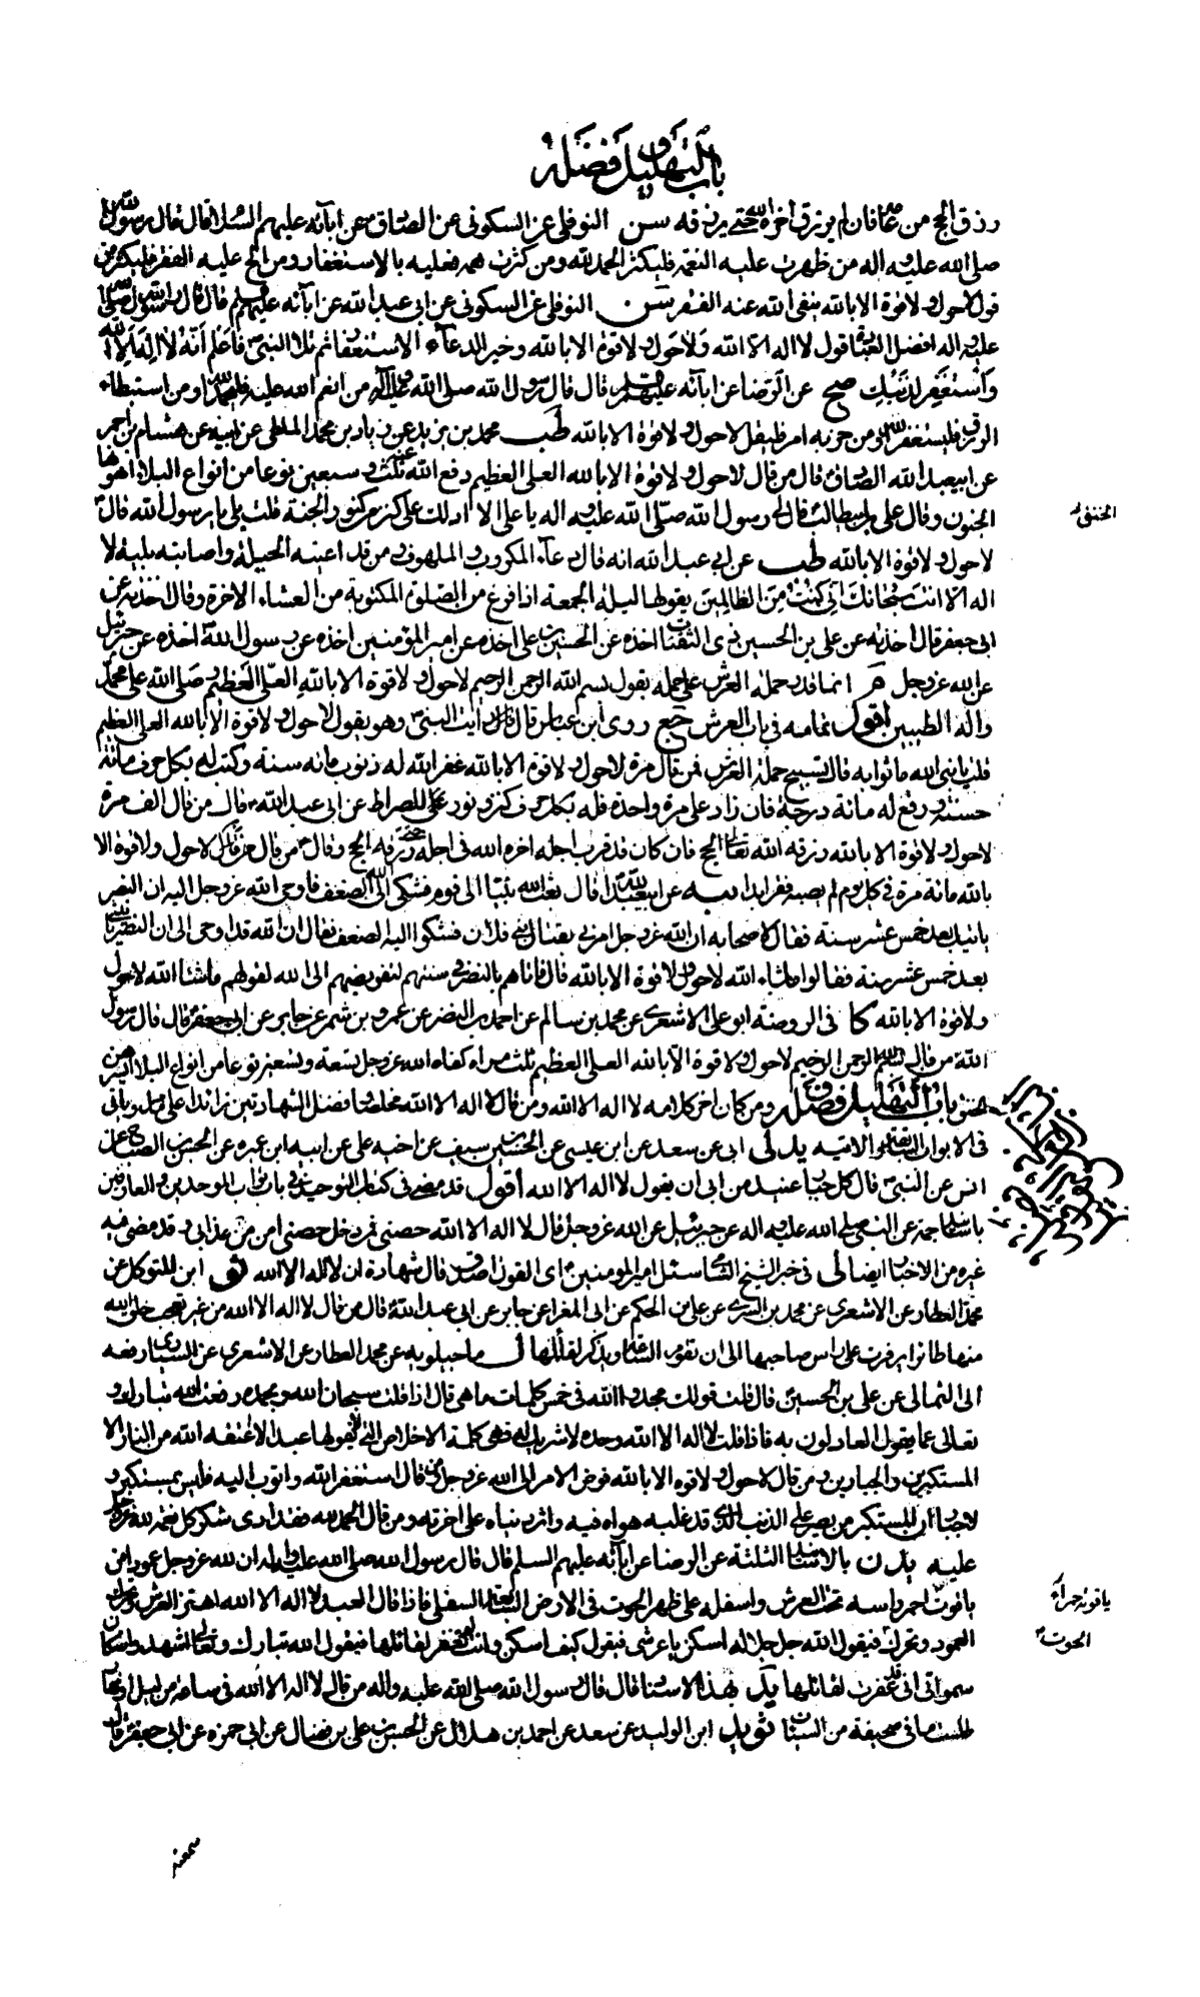 باب التهليل وفضله
رزق الحج من عامه فان لم يرزق اخره الله حتى يرزقه سن النوفلي عن السكوني عن الصادق عن ابائه عليهم السلام قال قال رسول الله
صلى الله عليه واله من ظهرت عليه النعمة فليكثر الحمد لله ومن كثرت همه فعليه بالاستغفار ومن الح عليه الفقر فليكثر من
قول لا حول ولا قوة الا بالله ينفى الله عنه الفقر سن النوفلي عن السكوني عن ابى عبد الله عن ابائه عليهم السلام قال قال رسول الله صلى الله
عليه واله افضل العبادة قول لا اله الا الله ولا حول ولا قوة الا بالله وخير الدعاء الاستغفار ثم تلا النبى ص فاعلم انه لا اله الا الله
واستغفر لذنبك صح عن الرضا عن ابائه عليهم السلام قال قال رسول الله صلى الله عليه واله من انعم الله عليه فليحمد الله ومن استبطاء
الرزق فليستغفر الله ومن حزبه امر فليقل لا حول ولا قوة الا بالله طب محمد بن يزيد عن زياد بن محمد الملطى عن ابيه عن هشام بن احمر
عن ابيعبد الله الصادق قال من قال لا حول ولا قوة الا بالله العلى العظيم دفع الله عنه ثلثة وسبعين نوعا من انواع البلاء اهونها
الجنون وقال على بن ابيطالب قال لى رسول الله صلى الله عليه واله يا على الا ادلك على كنز من كنوز الجنة قلت بلى يا رسول الله قال
لا حول ولا قوة الا بالله طب عن ابى عبد الله انه قال دعاء المكروب الملهوف ومن قد اعيته الحيلة واصابته بلية لا
اله الا انت سبحانك انى كنت من الظالمين يقولها ليلة الجمعة اذا فرغ من الصلوة المكتوبة من العشاء الاخرة وقال اخذته عن
ابى جعفر قال اخذته عن على بن الحسين ذى الثفنات اخذه عن الحسين بن على اخذه عن امير المؤمنين اخذه عن رسول الله اخذه عن جبرئيل
عن الله عز وجل م انما قدر حملة العرش على حمله بقول بسم الله الرحمن الرحيم لا حول ولا قوة الا بالله العلى العظيم وصلى الله على محمد
واله الطيبين اقول تمامه فى باب العرش جع روى ابن عباس قال رايت النبى ص وهو يقول لا حول ولا قوة الا بالله العلى العظيم
قلت يا نبى الله ما ثوابه قال تسبيح حملة العرش فمن قال مرة لا حول ولا قوة الا بالله غفر الله له ذنوب مائة سنة وكتب له بكل حرف مائة
حسنة ورفع له مائة درجة فان زاد على مرة واحدة فله بكل حرف كنز ونور على الصراط عن ابى عبد الله قال من قال الف مرة
لا حول ولا قوة الا بالله رزقه الله تعالى الحج فان كان قد قرب اجله اخره الله فى اجله حتى يرزقه الحج وقال من قال لا حول ولا قوة الا
بالله مائة مرة فى كل يوم لم يصبه فقر ابدا يه عن ابيعبد الله قال بعث الله نبيا الى قوم فشكى الى الله الضعف فاوحى الله عز وجل اليه ان النصر
ياتيك بعد خمس عشر سنة فقال لاصحابه ان الله عز وجل امرنى بقتال بنى فلان فشكوا اليه الضعف فقال ان الله قد اوحى الى ان النصر ياتينى
بعد خمس عشر سنة فقالوا ما شاء الله لا حول ولا قوة الا بالله قال فاتاهم بالنصر فى سنتهم لتفويضهم الى الله لقولهم ما شاء الله لا حول
ولا قوة الا بالله كا فى الروضة ابو على الاشعرى عن محمد بن سالم عن احمد بن النضر عن عمرو بن شمر عن جابر عن ابى جعفر قال قال رسول
الله من قال بسم الله الرحمن الرحيم لا حول ولا قوة الا بالله العلى العظيم ثلث مراة كفاه الله عز وجل تسعة وتسعين نوعا من انواع البلاء ايسرهن
الخنق باب التهليل وفضله ومن كان اخر كلامه لا اله الا الله ومن قال لا اله الا الله مخلصا وفضل الشهادتين زائدا على ما مر وياتى
فى الابواب السابقة والاتية يد لى ابى عن سعد عن ابن عيسى عن الحسين بن سيف عن اخيه على عن ابيه ابن عميره عن الحجاج عن
انس عن النبى ص قال كل جبار عنيد من ابى ان يقول لا اله الا الله أقول قد مضى فى كتاب التوحيد فى باب ثواب الموحدين والعارفين
باسانيد جمة عن النبى صلى الله عليه واله عن جبرئيل عن الله عز وجل قال لا اله الا الله حصنى فمن دخل حصنى امن من عذابى وقد مضى فيه
غيره من الاخبار ايضا لى فى خبر الشيخ الشامى سئل امير المؤمنين اى القول اصدق قال شهادة ان لا اله الا الله ثو ابن المتوكل عن
محمد العطار عن الاشعرى عن محمد بن السرى عن على بن الحكم عن ابى المغرا عن جابر عن ابى عبد الله قال من قال لا اله الا الله من غير تعجب خلق الله
منها طائرا يرفرف على راس صاحبها الى ان تقوم الساعة ويذكر لقائلها ل ماجيلويه عن محمد العطار عن الاشعرى عن السيارى رفعه
الى الثمالى عن على بن الحسين قال قلت قولك مجدوا الله فى خمس كلمات ما هى قال اذا قلت سبحان الله وبحمده رفعت الله تبارك و
تعالى عما يقول العادلون به فاذا قلت لا اله الا الله وحده لا شريك له فهى كلمة الاخلاص التى لا يقولها عبد الا اعتقه الله من النار الا
المستكبرين والجبارين ومن قال لا حول ولا قوة الا بالله فوض الامر الى الله عز وجل ومن قال استغفر الله واتوب اليه فليس بمستكبر و
لا جبار ان المستكبر من يصر على الذنب الذى قد غلبه هواه فيه واثر دنياه على اخرته ومن قال الحمد لله فقد ادى شكر كل نعمة لله عز وجل
عليه يد ن بالاسانيد الثلثة عن الرضا عن ابائه عليهم السلم قال قال رسول الله صلى الله عليه واله ان لله عز وجل عمودا من
ياقوت احمر راسه تحت العرش واسفله على ظهر الحوت فى الارض السابعة السفلى فاذا قال العبد لا اله الا الله اهتز العرش وتحرك
العمود وتحرك فيقول الله جل جلاله اسكن يا عرشى فيقول كيف اسكن وانت لم تغفر لقائلها فيقول الله تبارك وتعالى اشهدوا سكان
سمواتى انى قد غفرت لقائلها يد بهذا الاسناد قال قال رسول الله صلى الله عليه واله من قال لا اله الا الله فى ساعة من ليل او نهار
طلست ما فى صحيفة من السيئات ثو يد ابن الوليد عن سعد عن احمد بن هلال عن الحسن بن على بن فضال عن ابى حمزه عن ابى جعفر قال
الخنق
ياقوتة حمراء
الحوت
سمعته